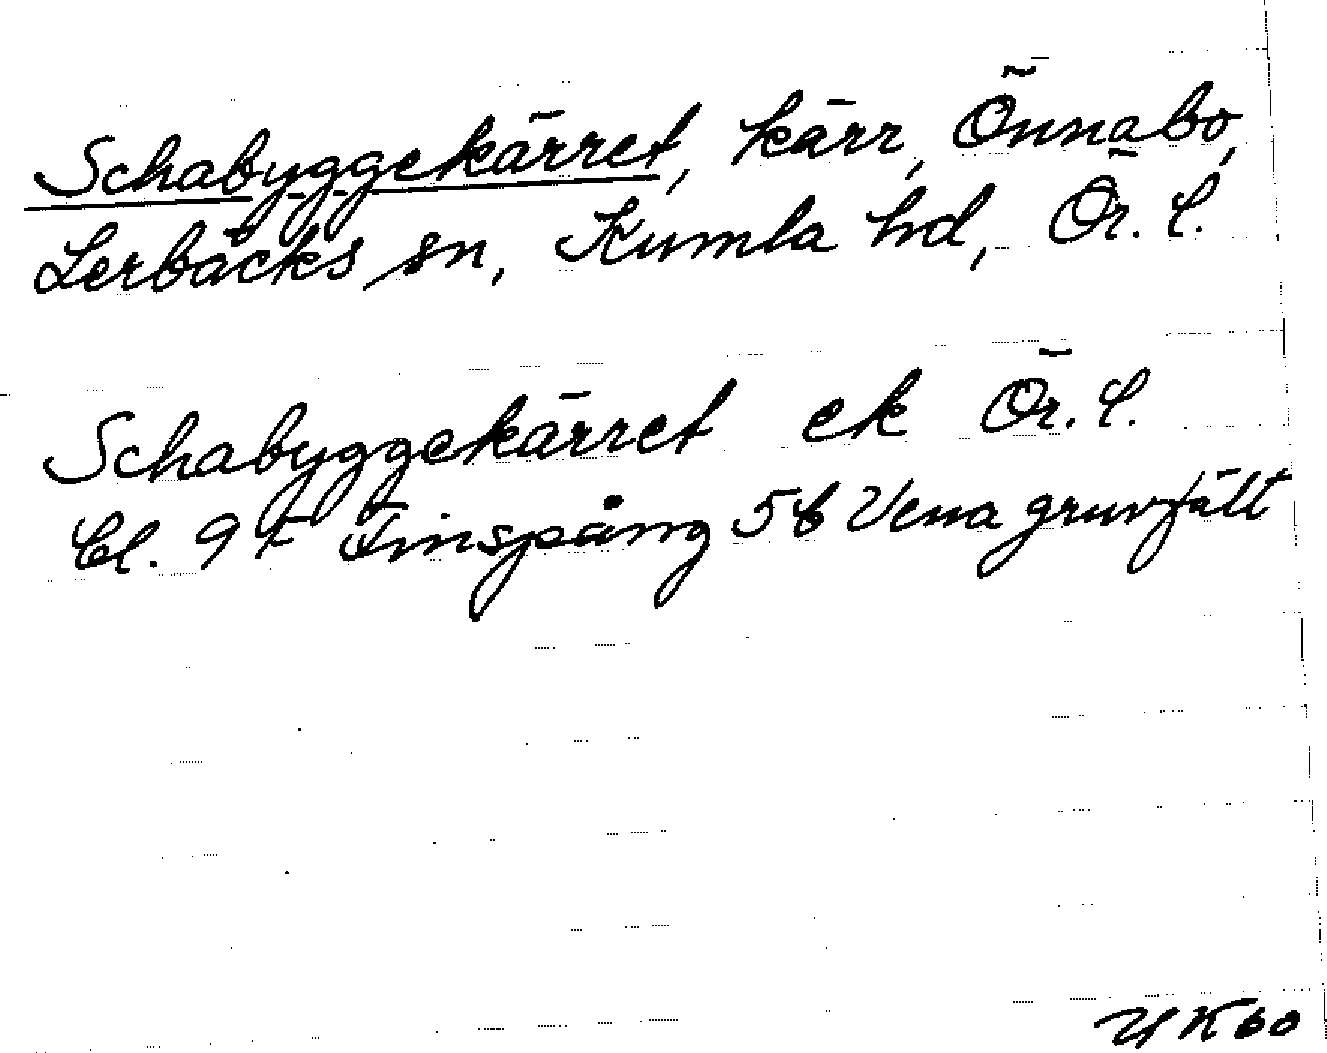 Schabyggekärret, kärr, Önnabo,
Lerbäcks sn, Kumla hd, Ör. l.
Schabyggekärret ek Ör. l.
Bl. 9 F Finspång 5 b Vena gruvfält
YK 60